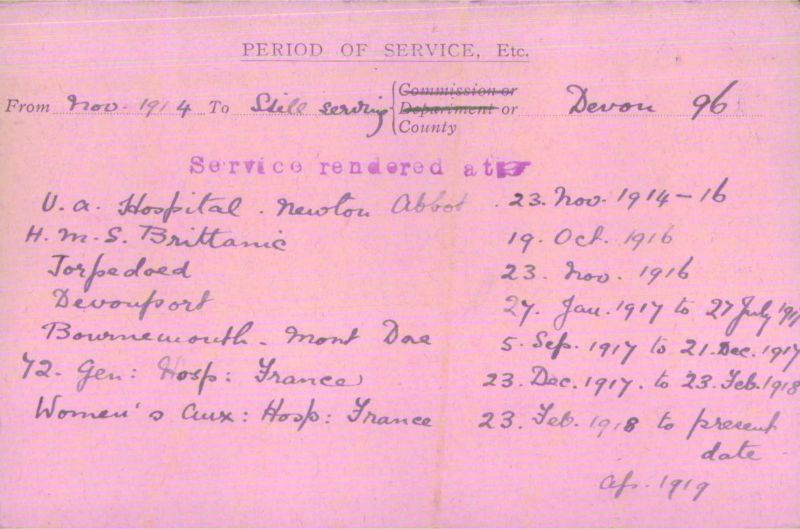 PERIOD OF SERVICE, Etc.
From Nov. 1914 To Still serving { Commission or Department or County Devon 96
Service rendered at
V. a. Hospital. Newton Abbot. 23. Nov. 1914-16
H. M. S. Brittanic 19. Oct. 1916
Torpedoed 23. Nov. 1916
Devonport 27. Jan. 1917 to 27 July 1917
Bournemouth - Mont Dore 5. Sep. 1917 to 21. Dec. 1917
72. Gen: Hosp: France 23. Dec. 1917. to 23. Feb. 1918
Women's Aux: Hosp: France 23. Feb. 1918 to present
date
Ap. 1919